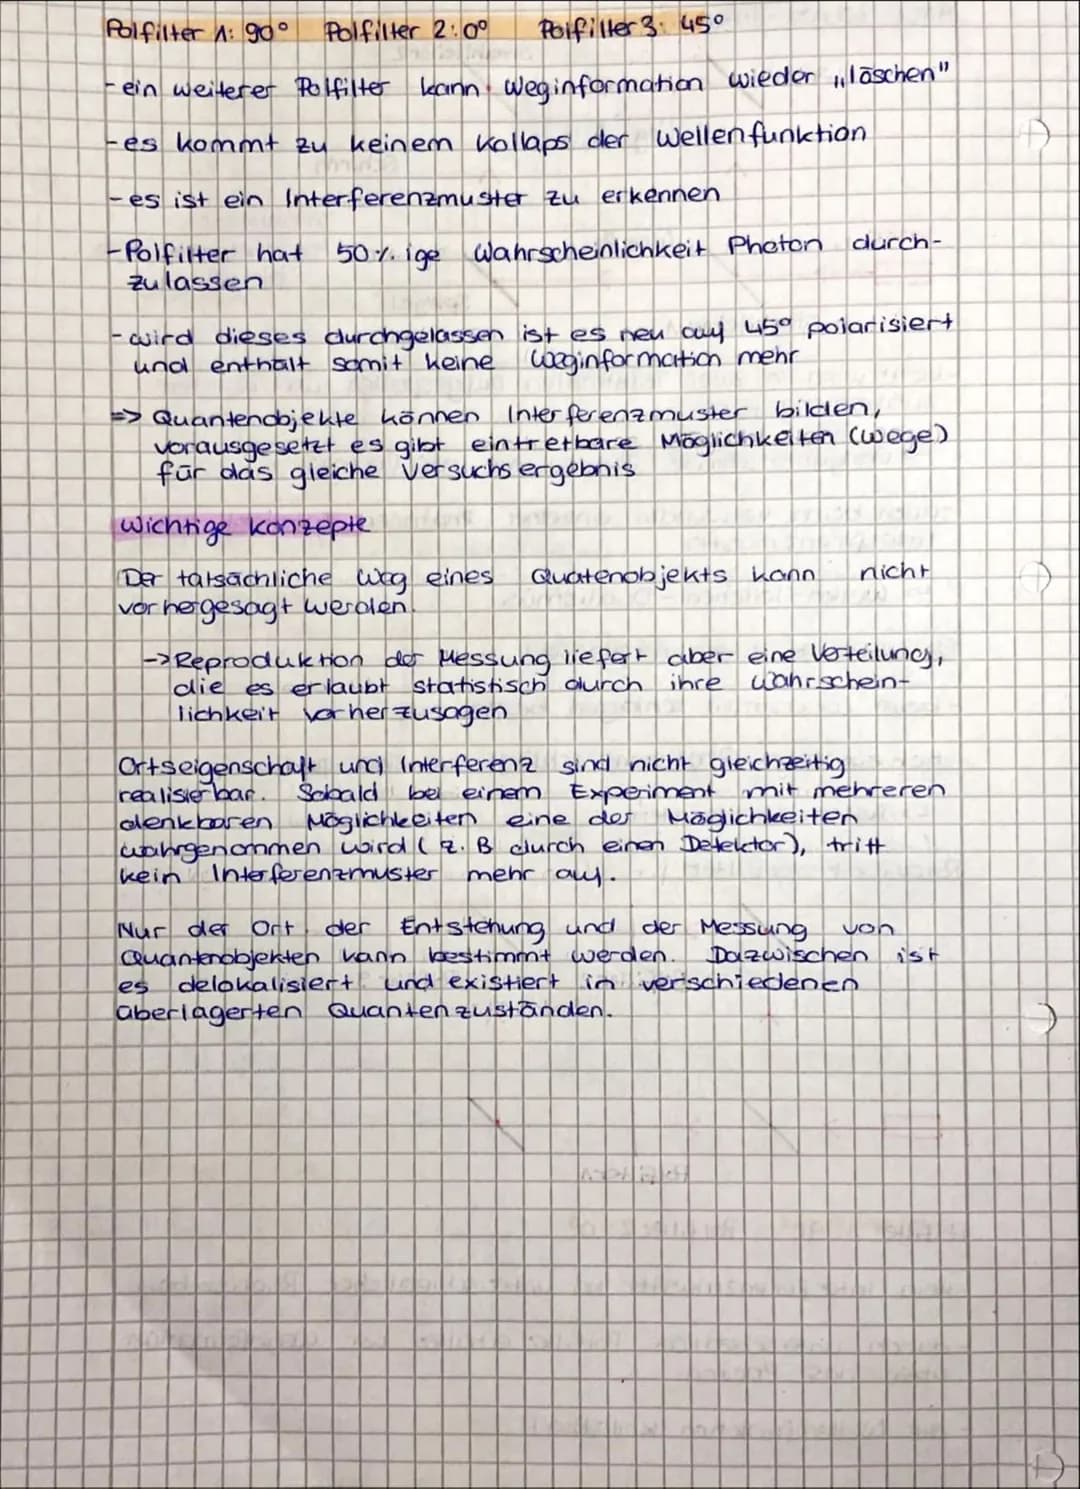 Polfilter 1: 90° Polfilter 2: 0° Polfilter 3: 45°
- ein weiterer Polfilter kann Weginformation wieder „löschen"
- es kommt zu keinem Kollaps der Wellenfunktion
- es ist ein Interferenzmuster zu erkennen
- Polfilter hat 50%ige Wahrscheinlichkeit Photon durch-
zulassen
- wird dieses durchgelassen ist es neu auf 45° polarisiert
und enthält somit keine Weginformation mehr
=> Quantenobjekte können Interferenzmuster bilden,
vorausgesetzt es gibt eintretbare Möglichkeiten (Wege)
für das gleiche Versuchsergebnis
Wichtige Konzepte
Der tatsächliche Weg eines Quatenobjekts kann nicht
vorhergesagt werden.
-> Reproduktion der Messung liefert aber eine Verteilung,
die es erlaubt statistisch durch ihre Wahrschein-
lichkeit vorherzusagen
Ortseigenschaft und Interferenz sind nicht gleichzeitig
realisierbar. Sobald bei einem Experiment mit mehreren
denkbaren Möglichkeiten eine der Möglichkeiten
wahrgenommen wird (z.B durch einen Detektor), tritt
kein Interferenzmuster mehr auf.
Nur der Ort der Entstehung und der Messung von
Quantenobjekten kann bestimmt werden. Dazwischen ist
es delokalisiert und existiert in verschiedenen
überlagerten Quantenzuständen.